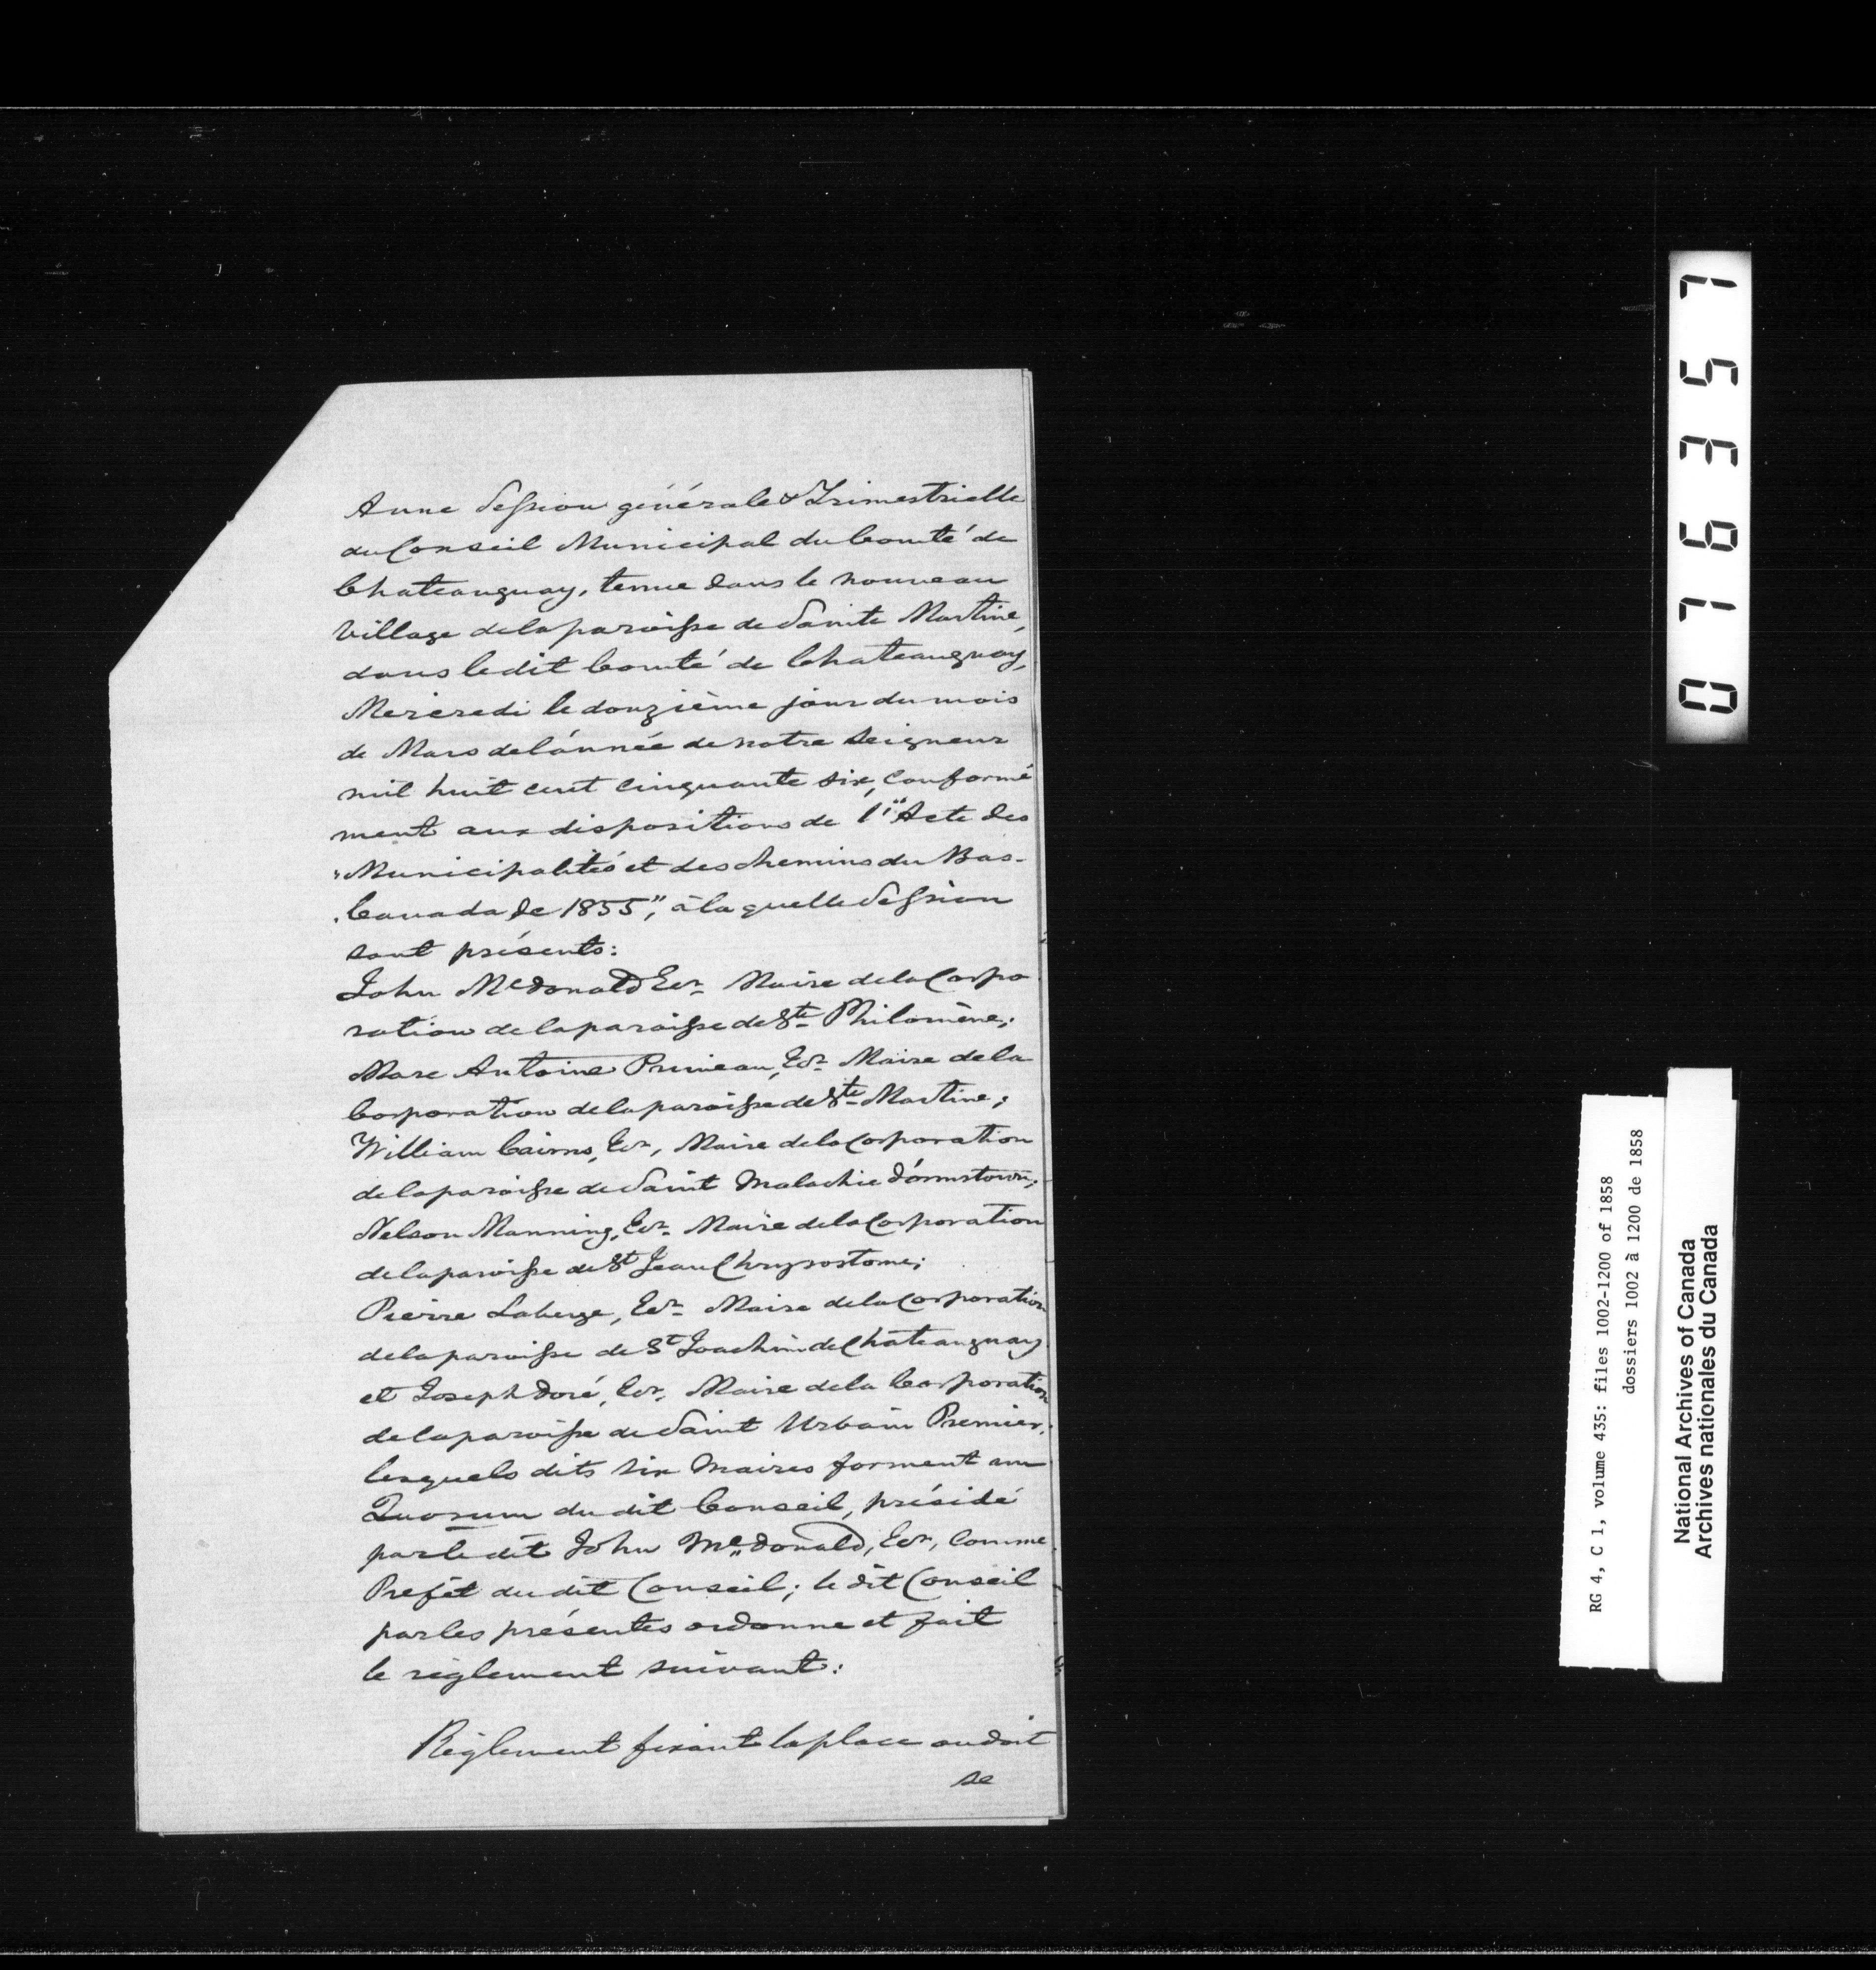 Aune Session générale & Trimestrielle
du Conseil Municipal du Comté de
Chateauguay, tenue dans le nouveau
Village de la paroisse de Sainte Martine,
dans ledit Comté de Chateauguay,
Mercredi le douzième jour du mois
de Mars de l'année de notre Seigneur
mil huit cent cinquante six, conformé
ment aux dispositions de l'"Acte des
"Municipalités et des chemins du Bas-
"Canada de 1855", à laquelle Session
sont présents:
John McDonald Ecr. Maire de la Corpo
ration de la paroisse de Ste Philomène;
Marc Antoine Primeau, Ecr. Maire de la
Corporation de la paroisse de Ste Martine;
William Cairns, Ecr., Maire de la Corporation
de la paroisse de Saint Malachie d'ormstown;
Nelson Manning, Ecr. Maire de la Corporation
de la paroisse de St Jean Chrysostome;
Pierre Laberge, Ecr. Maire de la Corporation
de la paroisse de St Joachim de Chateauguay
et Joseph Doré, Ecr. Maire de la Corporation
de la paroisse de Saint Urbain Premier;
lesquels dits six Maires forment un
Quorum du dit Conseil, présidé
par le dit John McDonald, Ecr, comme
Prefêt du dit Conseil; le dit Conseil
par les présentes ordonne et fait
le règlement suivant:
Règlement fixant la place ou doit
se
076357
RG 4, C 1, volume 435: files 1002-1200 of 1858
dossiers 1002 à 1200 de 1858
National Archives of Canada
Archives nationales du Canada